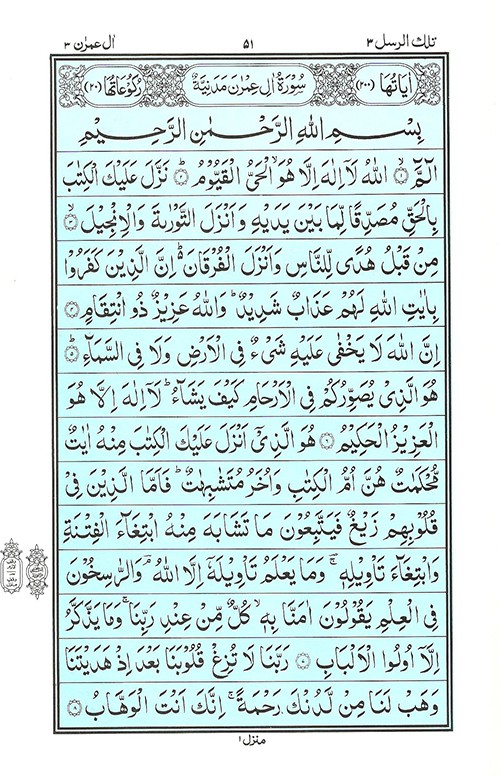 تلك الرسل ٣ ٥١ اٰل عمرٰن ٣
اٰيَاتُهَا (٢٠٠) سُوْرَةُ اٰلِ عِمْرٰنَ مَدَنِيَّةٌ رُكُوْعَاتُهَا (٢٠)
بِسْمِ اللهِ الرَّحْمٰنِ الرَّحِيْمِ
الٓمّٓ ۙ﴿١﴾ اللهُ لَاۤ اِلٰهَ اِلَّا هُوَ ۙ الْحَىُّ الْقَيُّوْمُ ؕ﴿٢﴾ نَزَّلَ عَلَيْكَ الْكِتٰبَ
بِالْحَقِّ مُصَدِّقًا لِّمَا بَيْنَ يَدَيْهِ وَاَنْزَلَ التَّوْرٰىةَ وَالْاِنْجِيْلَ ۙ﴿٣﴾
مِنْ قَبْلُ هُدًى لِّلنَّاسِ وَاَنْزَلَ الْفُرْقَانَ ؕ۬ اِنَّ الَّذِيْنَ كَفَرُوْا
بِاٰيٰتِ اللهِ لَهُمْ عَذَابٌ شَدِيْدٌ ؕ وَاللهُ عَزِيْزٌ ذُو انْتِقَامٍ ﴿٤﴾
اِنَّ اللهَ لَا يَخْفٰى عَلَيْهِ شَىْءٌ فِى الْاَرْضِ وَلَا فِى السَّمَآءِ ؕ﴿٥﴾
هُوَ الَّذِىْ يُصَوِّرُكُمْ فِى الْاَرْحَامِ كَيْفَ يَشَآءُ ؕ لَاۤ اِلٰهَ اِلَّا هُوَ
الْعَزِيْزُ الْحَكِيْمُ ﴿٦﴾ هُوَ الَّذِىْۤ اَنْزَلَ عَلَيْكَ الْكِتٰبَ مِنْهُ اٰيٰتٌ
مُّحْكَمٰتٌ هُنَّ اُمُّ الْكِتٰبِ وَاُخَرُ مُتَشٰبِهٰتٌ ؕ فَاَمَّا الَّذِيْنَ فِىْ
قُلُوْبِهِمْ زَيْغٌ فَيَتَّبِعُوْنَ مَا تَشَابَهَ مِنْهُ ابْتِغَآءَ الْفِتْنَةِ
وَابْتِغَآءَ تَاْوِيْلِهٖ ۚ وَمَا يَعْلَمُ تَاْوِيْلَهٗۤ اِلَّا اللهُ ۘ وَالرّٰسِخُوْنَ
فِى الْعِلْمِ يَقُوْلُوْنَ اٰمَنَّا بِهٖ ۙ كُلٌّ مِّنْ عِنْدِ رَبِّنَا ۚ وَمَا يَذَّكَّرُ
اِلَّاۤ اُولُوا الْاَلْبَابِ ﴿٧﴾ رَبَّنَا لَا تُزِغْ قُلُوْبَنَا بَعْدَ اِذْ هَدَيْتَنَا
وَهَبْ لَنَا مِنْ لَّدُنْكَ رَحْمَةً ۚ اِنَّكَ اَنْتَ الْوَهَّابُ ﴿٨﴾
منزل ١